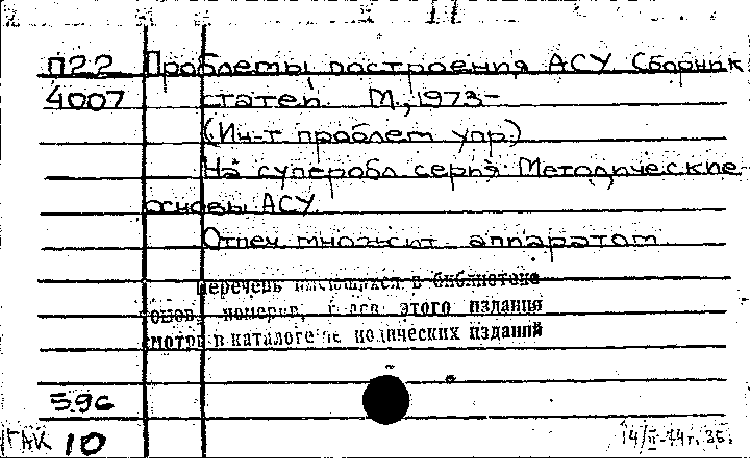 П22 Проблемы построения АСУ. Сборник
4007 статей. М., 1973-
(Ин-т проблем упр.)
На суперобл. серия: Методические
основы АСУ.
Отпеч. множит. аппаратом
Перечень имеющихся в библиотеке
томов, номеров, этого издания
смотри в каталоге периодических изданий
59с
ГАК 10
14/II-74г. 35.